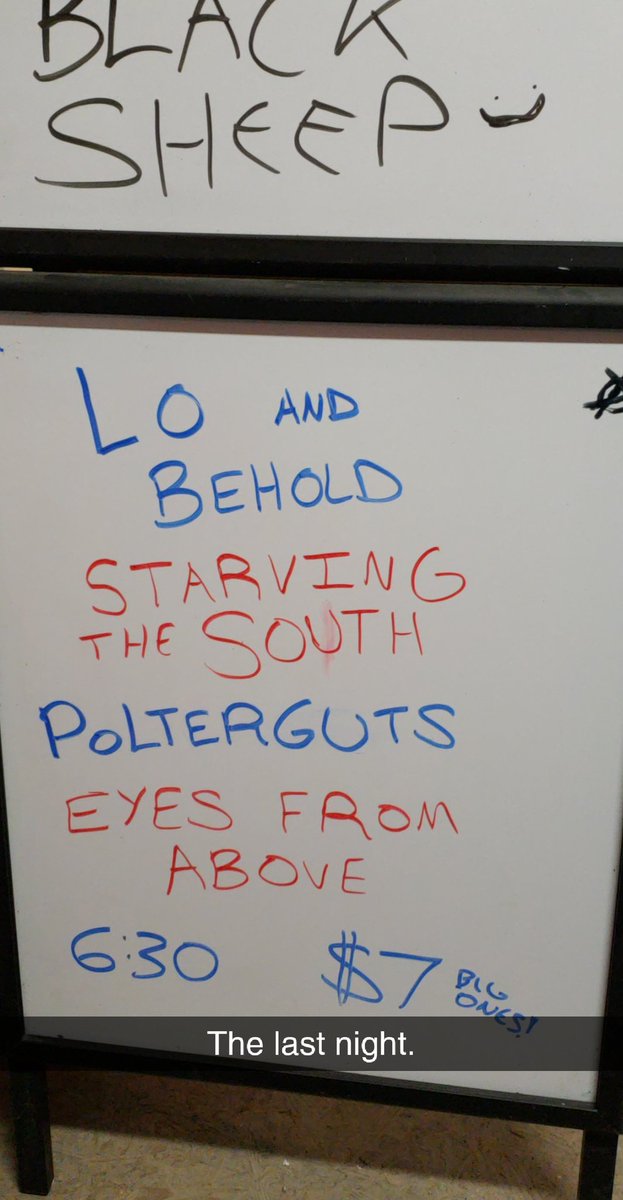 BLACK
SHEEP
LO AND
BEHOLD
STARVING
THE SOUTH
POLTERGUTS
EYES FROM
ABOVE
6:30 $7 BIG
ONES!
The last night.